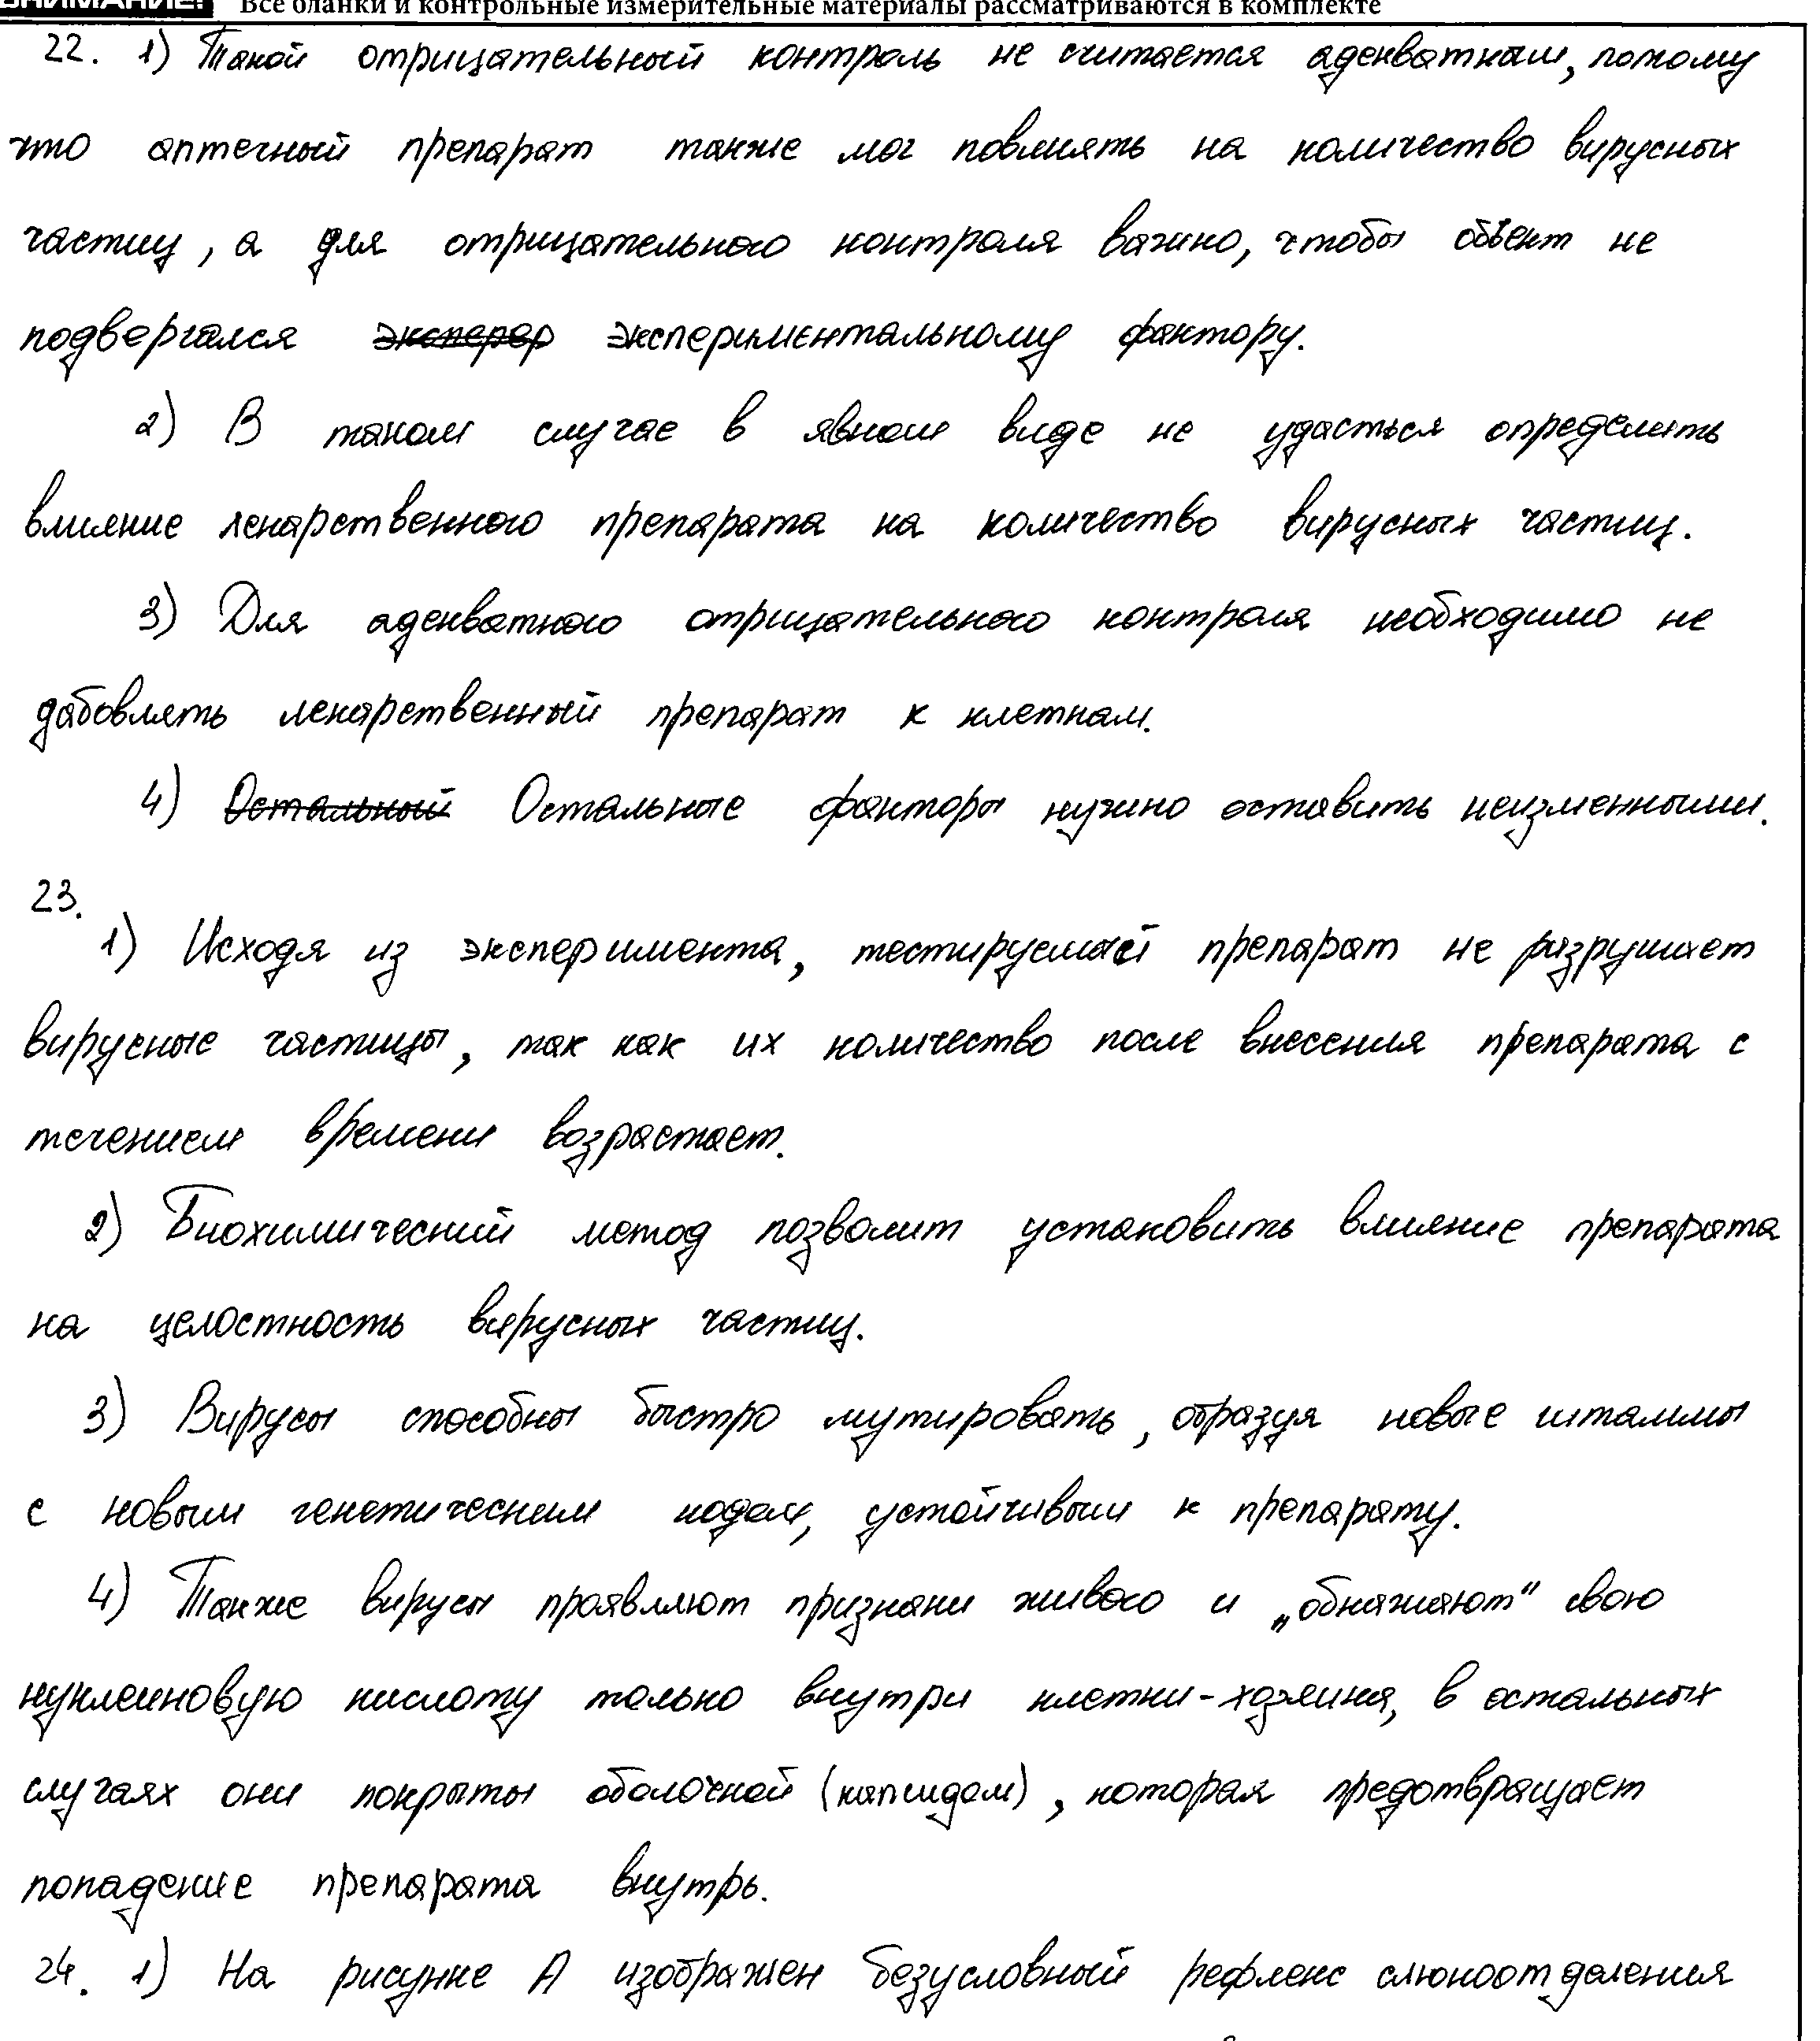 ВНИМАНИЕ! Все бланки и контрольные измерительные материалы рассматриваются в комплекте
22. 1) Такой отрицательный контроль не считается адекватным, потому
что аптечный препарат также мог повлиять на количество вирусных
частиц, а для отрицательного контроля важно, чтобы объект не
подвергался экспер экспериментальному фактору.
2) В таком случае в явном виде не удасться определить
влияние лекарственного препарата на количество вирусных частиц.
3) Для адекватного отрицательного контроля необходимо не
добовлять лекарственный препарат к клеткам.
4) Остальный Остальные факторы нужно оставить неизменными.
23.
1) Исходя из эксперимента, тестируемый препарат не разрушает
вирусные частицы, так как их количество после внесения препарата с
течением времени возрастает.
2) Биохимический метод позволит установить влияние препарата
на целостность вирусных частиц.
3) Вирусы способны быстро мутировать, образуя новые штаммы
с новым генетическим кодом, устойчивым к препарату.
4) Также вирусы проявляют признаки живого и „обнажают" свою
нуклеиновую кислоту только внутри клетки-хозяина, в остальных
случаях они покрыты оболочкой (капсидом), которая предотвращает
попадение препарата внутрь.
24. 1) На рисунке А изображен безусловный рефлекс слюноотделения